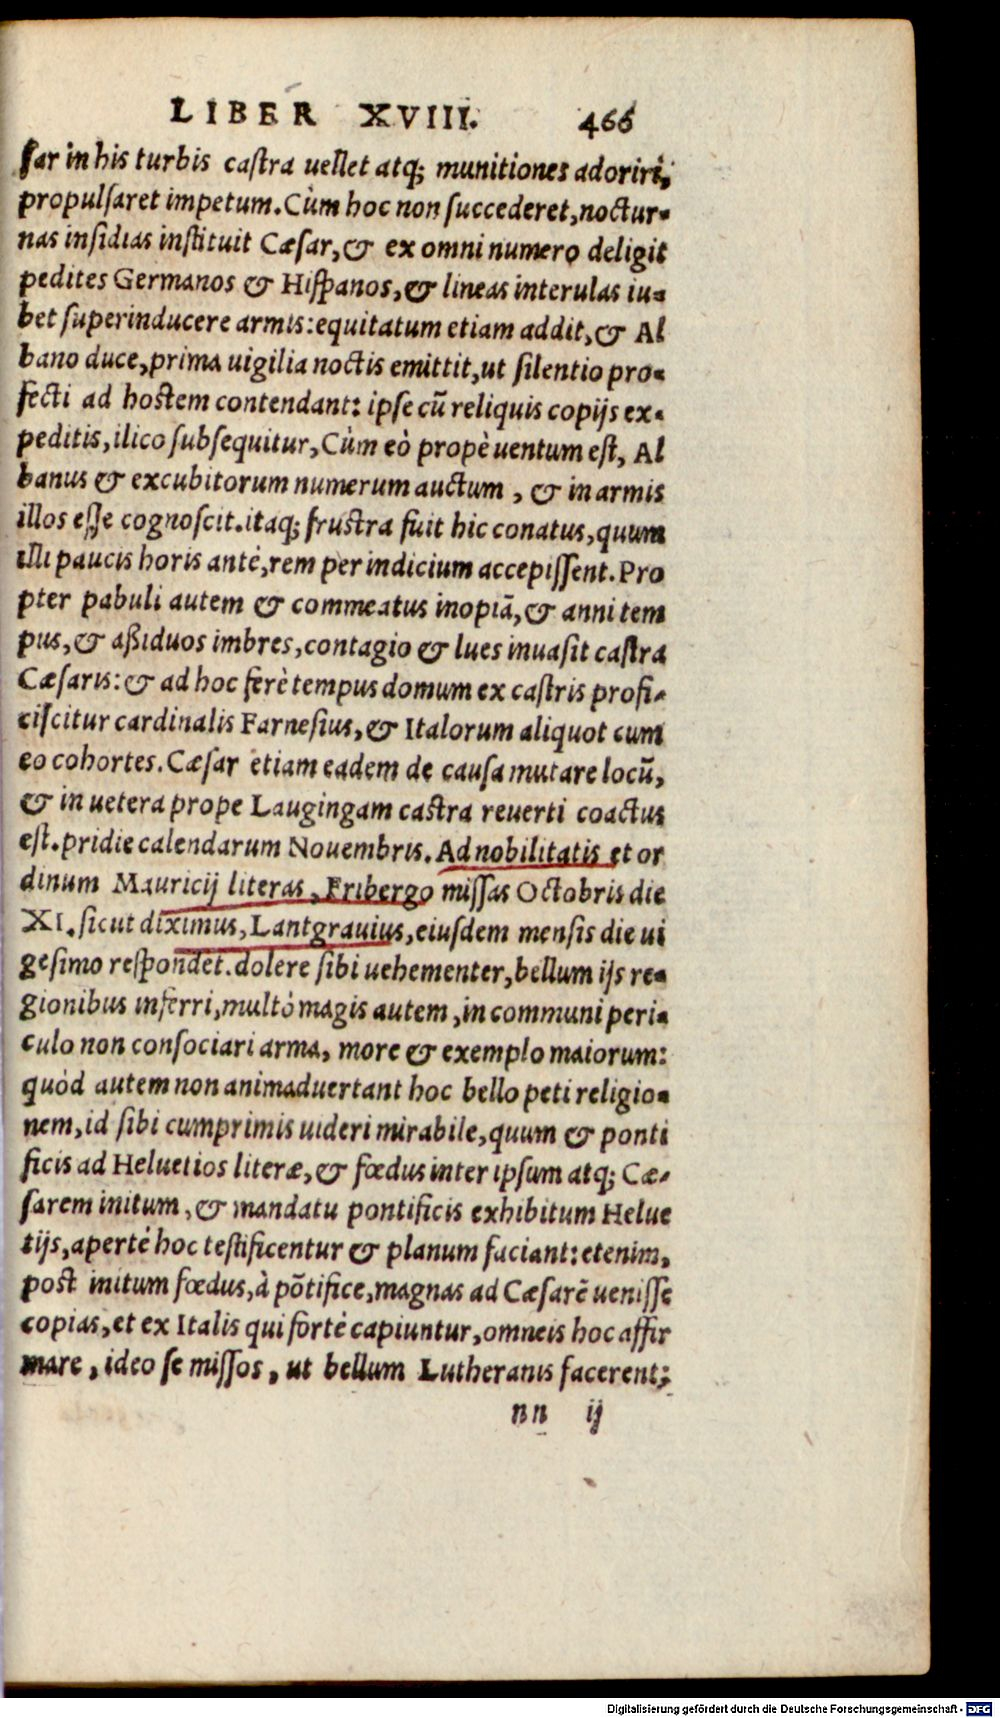 LIBER XVIII. 466
ſar in his turbis caſtra uellet atq; munitiones adoriri,
propulſaret impetum. Cùm hoc non ſuccederet, noctur-
nas inſidias inſtituit Cæſar, & ex omni numero deligit
pedites Germanos & Hiſpanos, & lineas interulas iu-
bet ſuperinducere armis: equitatum etiam addit, & Al
bano duce, prima uigilia noctis emittit, ut ſilentio pro-
fecti ad hoſtem contendant: ipſe cū reliquis copijs ex-
peditis, ilico ſubſequitur, Cùm eò propè uentum eſt, Al
banus & excubitorum numerum auctum, & in armis
illos eſſe cognoſcit. itaq; fruſtra fuit hic conatus, quum
illi paucis horis antè, rem per indicium accepiſſent. Pro
pter pabuli autem & commeatus inopiā, & anni tem
pus, & aßiduos imbres, contagio & lues inuaſit caſtra
Cæſaris: & ad hoc ferè tempus domum ex caſtris profi-
ciſcitur cardinalis Farneſius, & Italorum aliquot cum
eo cohortes. Cæſar etiam eadem de cauſa mutare locū,
& in uetera prope Laugingam caſtra reuerti coactus
eſt. pridie calendarum Nouembris. Ad nobilitatis et or
dinum Mauricij literas, Fribergo miſſas Octobris die
XI. ſicut diximus, Lantgrauius, eiuſdem menſis die ui
geſimo reſpondet. dolere ſibi uehementer, bellum ijs re-
gionibus inferri, multò magis autem, in communi peri-
culo non conſociari arma, more & exemplo maiorum:
quòd autem non animaduertant hoc bello peti religio-
nem, id ſibi cumprimis uideri mirabile, quum & ponti
ficis ad Heluetios literæ, & fœdus inter ipſum atq; Cæ-
ſarem initum, & mandatu pontificis exhibitum Helue
tijs, apertè hoc teſtificentur & planum faciant: etenim,
poſt initum fœdus, à pōtifice, magnas ad Cæſarē ueniſſe
copias, et ex Italis qui fortè capiuntur, omneis hoc affir
mare, ideo ſe miſſos, ut bellum Lutheranis facerent;
nn ij
Digitalisierung gefördert durch die Deutsche Forschungsgemeinschaft - DFG